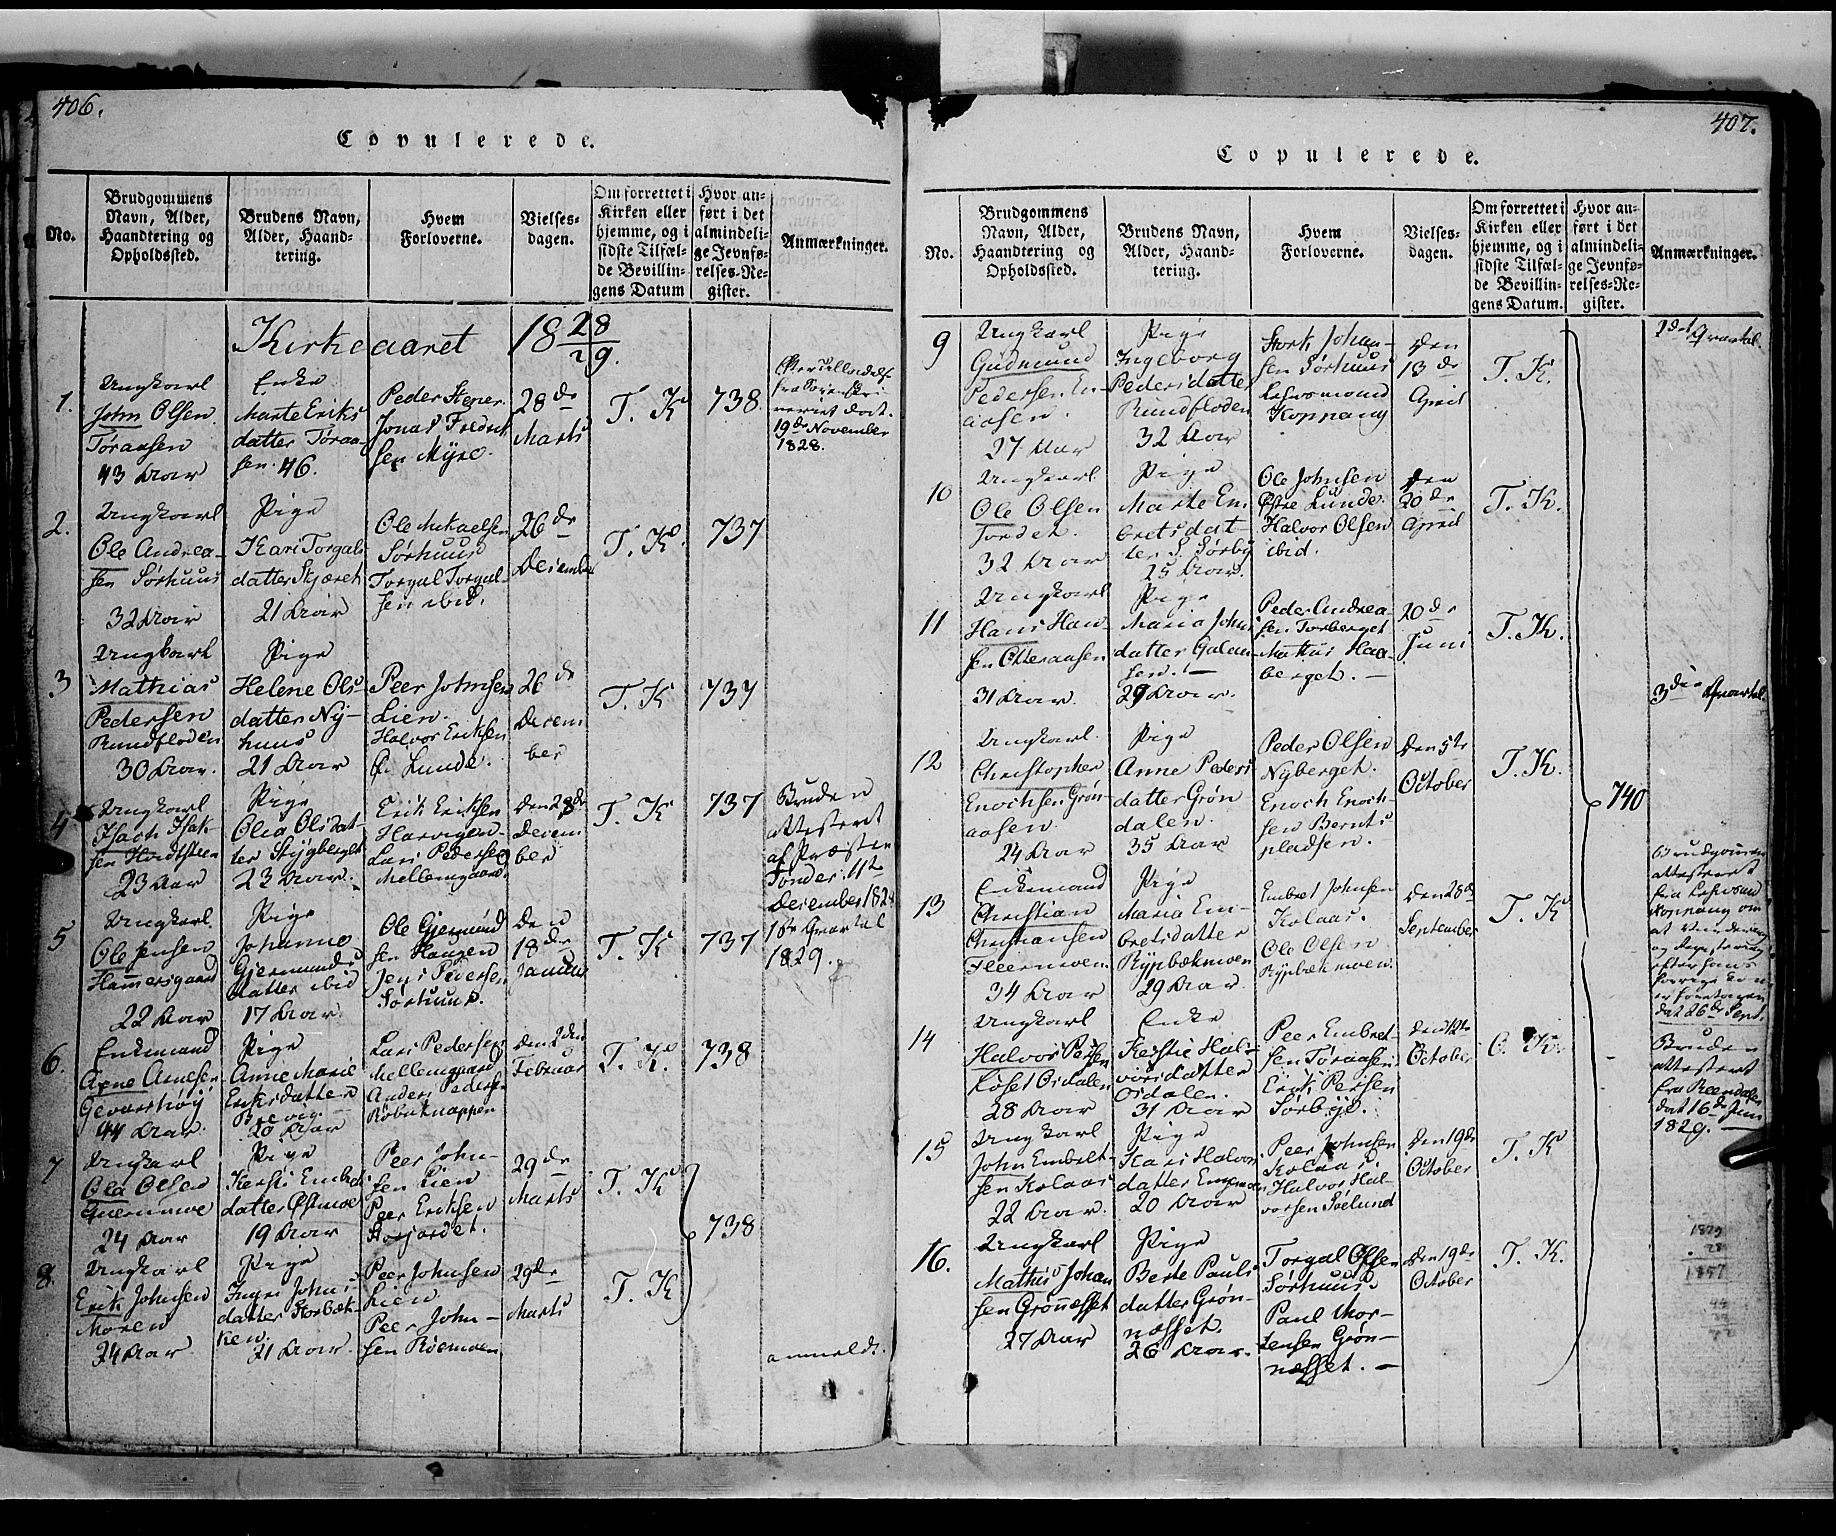 406.
Copulerede.
No.
Brudgommens
Navn, Alder,
Haandtering og
Opholdssted.
Brudens Navn,
Alder, Haand-
tering.
Hvem
Forloverne.
Vielses-
dagen.
Om forrettet i
Kirken eller
hjemme, og i
sidste Tilfæl-
de Bevillin-
gens Datum
Hvor an-
ført i det
almindeli-
ge Jevnfø-
relses-Re-
gister.
Anmærkninger.
Kirkeaaret 1828/29.
1.
Ungkarl
John Olsen
Tøraasen
43 Aar
Enke
Marte Eriks
datter Tøraa-
sen. 46.
Peder
Jonas Fredrik
sen Myre.
28de
Marts
T. K
738.
fra
19de November
1828.
2.
Ungkarl
Ole Andrea-
sen Sørhuus
32 Aar
Pige
Kari Torgals
datter Skjæret
21 Aar
Ole Mikaelsen
Sørhuus
Torgal Torgal-
sen ibid.
26de
December
T. K.
737
3
Ungkarl
Mathias
Pedersen
Rundfloden
30 Aar.
Pige
Helene Ols-
datter Ny-
huus
21 Aar
Peer Johnsen
Lien.
Halvor Eriksen
Ø. Lunde.
26de
Decem
ber
T. K
737
4
Ungkarl
Isach Isak-
sen
23 Aar
Pige
Olia Olsdat-
ter Stygberget
23 Aar.
Erik Eriksen
Lars Pedersen
Mellemgaard.
den 28de
Decem
ber
T. K
737
Bruden
attesteret
af Præsten
Tønder 11te
December 1828
1ste Qvartal
1829.
5
Ungkarl.
Ole Jensen
Hammersgaard
22 Aar
Pige
Johanne
Gjermunds
datter ibid
17 Aar.
Ole Gjermund
sen Haugen
Jens Pedersen
Sørhuus.
Den
18de
Januar
T. K
737
6.
Enkemand
Arne Arnesen
44 Aar.
Pige
Anne Marie
Eriksdatter
20 Aar
Lars Pedersen
Mellemgaard
Anders Peders-
Røbæknappen
den 2den
Februar
T. K.
738
7
Ungkarl
Ola Olsen
24 Aar
Pige
Kersti Embrets
datter Østmoe
19 Aar
Peer John-
sen Lien
Peer Eriksen
Storjordet.
29de
Marts
T. K
738
8.
Ungkarl
Erik Johnsen
Moren
24 Aar
Pige
Ingri Johns-
datter Storbæk-
ken.
21 Aar.
Peer Johnsen
Lien
Peer John-
sen
29de
Marts
T. K
anmeldt.
407.
Copulerede.
No.
Brudgommens
Navn, Alder,
Haandtering og
Opholdssted.
Brudens Navn,
Alder, Haand-
tering.
Hvem
Forloverne.
Vielses-
dagen.
Om forrettet i
Kirken eller
hjemme, og i
sidste Tilfæl-
de Bevillin-
gens Datum.
Hvor an-
ført i det
almindeli-
ge Jevnfø-
relses-Re-
gister.
Anmærkninger.
9
Ungkarl
Gudmund
Pedersen En-
aasen.
37 Aar
Pige
Ingeborg
Pedersdatter
Rundfloden
32 Aar
Stork Johan-
sen Sørhuus
Lensmand
Koppang
Den
13de
April
T. K.
1ste Qvartal.
10
Ungkarl
Ole Olsen
Jordet.
32 Aar
Pige
Marte Em
bretsdat-
ter S. Sørby
25 Aar.
Ole Johnsen
Øvre Lunde.
Halvor Olsen
ibid.
den
20de
April
T. K.
11
Ungkarl
Hans Han-
sen Otteraasen
31 Aar.
Pige
Maria Johns
datter Galaa-
sen. —
29 Aar.
Peder Andrea-
sen Torberget
Mattis Haa-
berget. —
20de
Juni
T. K.
3die Qvartal
12
Ungkarl.
Christopher
Enochsen Grøn-
aasen.
24 Aar
Pige
Anne Peders
datter Grøn
dalen.
35 Aar
Peder Olsen
Nyberget.
Enoch Enoch-
sen Bernts
pladsen.
den 5te
October
T. K.
740
13
Enkemand
Christian
Christiansen
34 Aar
Pige
Maria Em-
bretsdatter
Rypbækmoen
29 Aar.
Embret Johnsen
Kolaas.
Ole Olsen
Rypbækmoen.
den 28de
September
T. K
Brudgommen
attesteret
fra Lensmand
Koppang om
at Vurdering
og Registering
efter hans
forrige Kone
er foretagen
dat 26de Sept.
14
Ungkarl
Halvor Peersen
28 Aar
Enke
Kerstie Hal-
vorsdatter
Osdalen.
31 Aar
Peer Embret-
sen Tøraasen
Erik Persen
Sørbye.
den 12te
October
O. K.
Bruden
attesteret
fra Reendalen
dat 16de Juni
1829.
15
Ungkarl
John Embret-
sen Kolaas
22 Aar.
Pige
Kari Halvors
datter
20 Aar
Peer Johnsen
Kolaas.
Halvor Hal-
vorsen Sælund
den 19de
October
T. K
16.
Ungkarl
Mathis Johan
sen Grønæsset
27 Aar
Pige
Berte Pauls
datter Grøn-
næsset.
26 Aar.
Torgal Olsen
Sørhuus.
Paul Mor-
tensen Grøn-
næsset. —
den 19de
October
T. K.
1829
28
1857